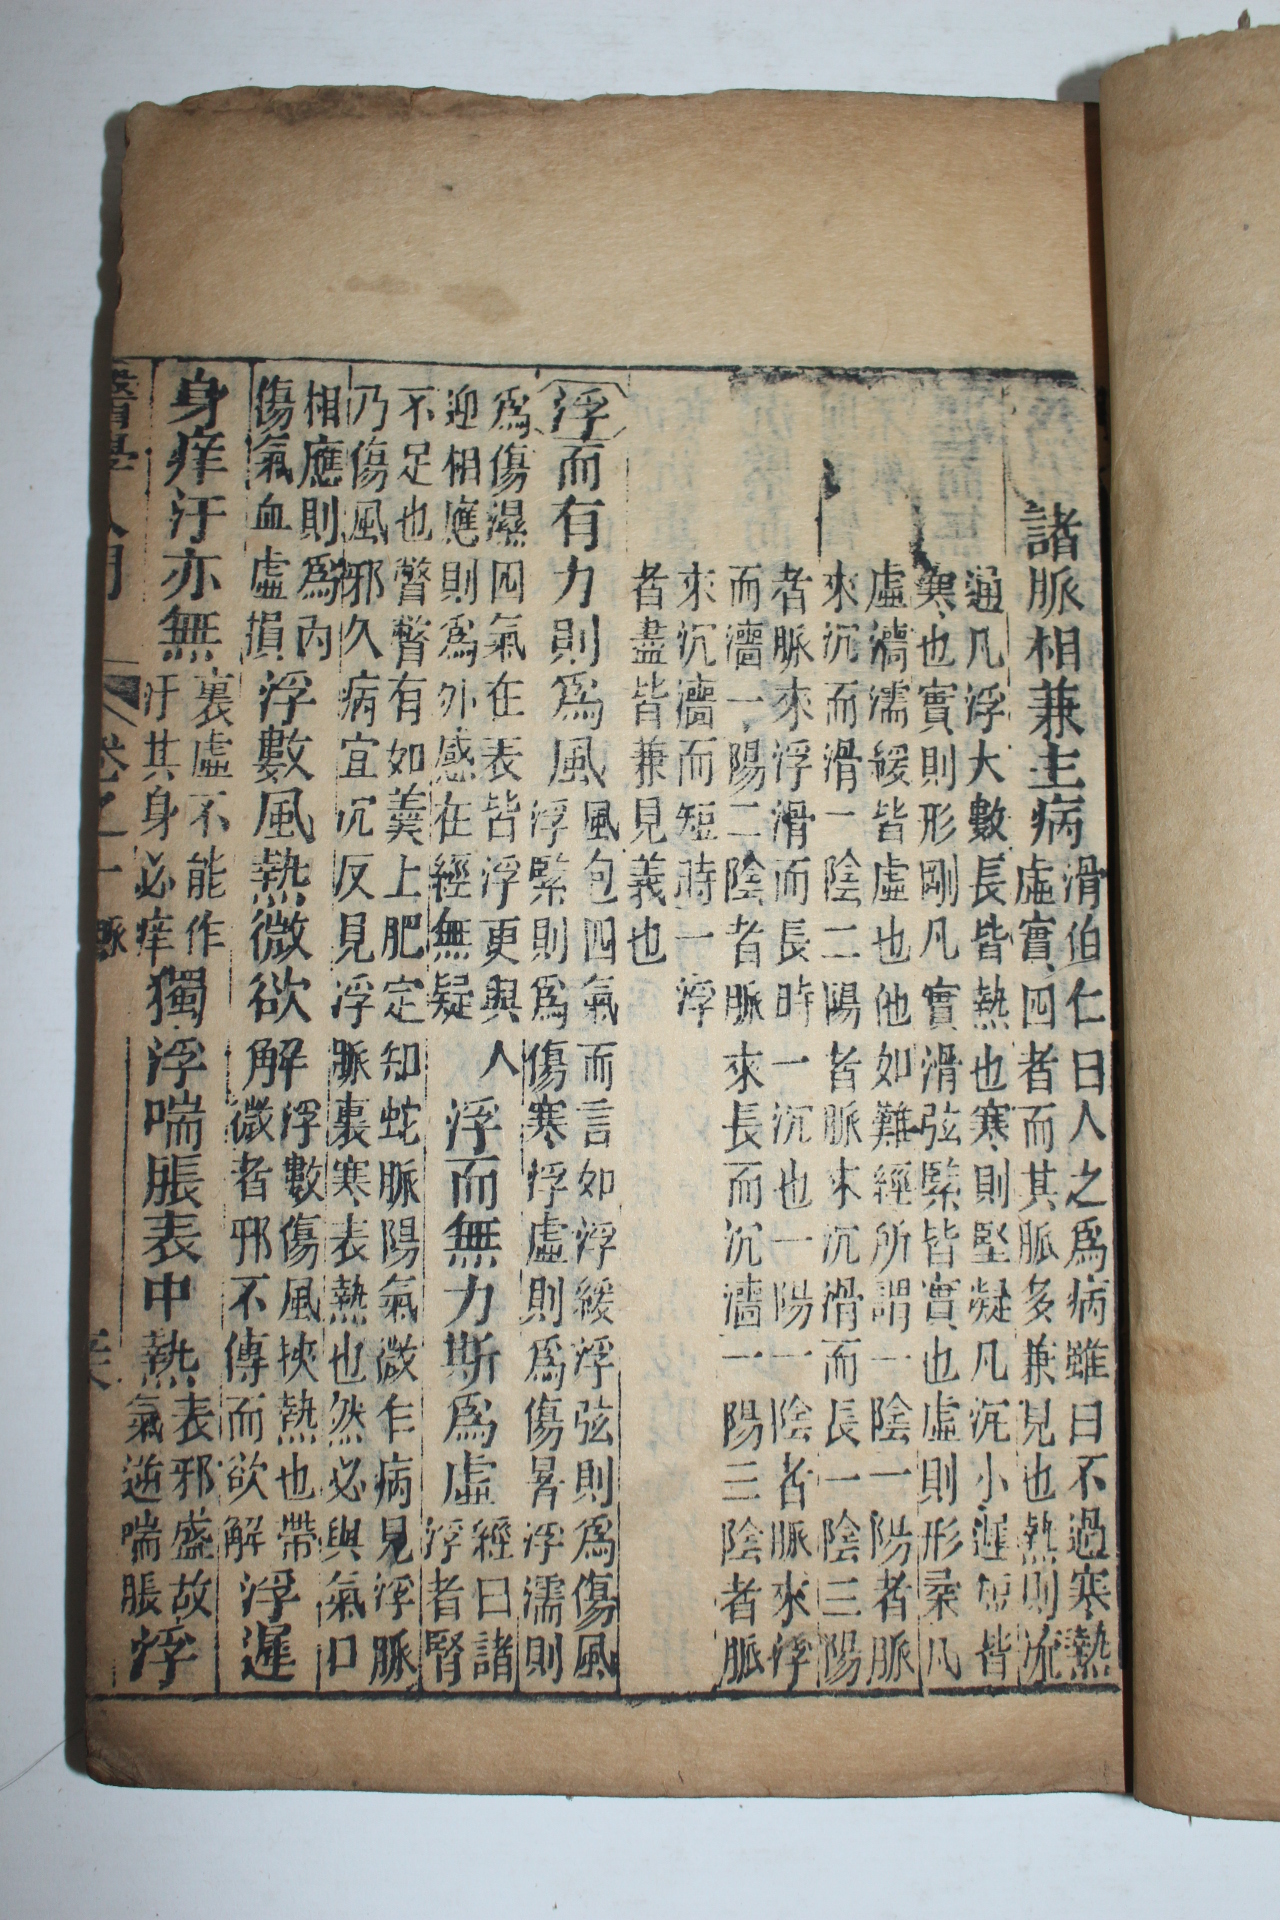 諸脈相兼主病
滑伯仁曰人之爲病雖曰不過寒熱
虛實四者而其脈多兼見也熱則流
通凡浮大數長皆熱也寒則堅凝凡沉小遲短皆
寒也實則形剛凡實滑弦緊皆實也虛則形柔凡
虛濇濡緩皆虛也他如難經所謂一陰一陽者脈
來沉而滑一陰二陽者脈來沉滑而長一陰三陽
者脈來浮滑而長時一沉也一陽一陰者脈來浮
而濇一陽二陰者脈來長而沉濇一陽三陰者脈
來沉濇而短時一浮
者盡皆兼見義也
浮而有力則爲風
風包四氣而言如浮緩浮弦則爲傷風
浮緊則爲傷寒浮虛則爲傷暑浮濡則
爲傷濕四氣在表皆浮更與人
迎相應則爲外感在經無疑
浮而無力斯爲虛
經曰諸
浮者腎
不足也瞥瞥有如羹上肥定知蛇脈陽氣微乍病見浮脈
乃傷風邪久病宜沉反見浮脈裏寒表熱也然必與氣口
相應則爲內
傷氣血虛損
浮數風熱微欲解
浮數傷風挾熱也帶
微者邪不傳而欲解
浮遲
身痒汗亦無
裏虛不能作
汗其身必痒
獨浮喘脹表中熱
表邪盛故
氣逆喘脹
浮
醫學入門
卷之一
脉